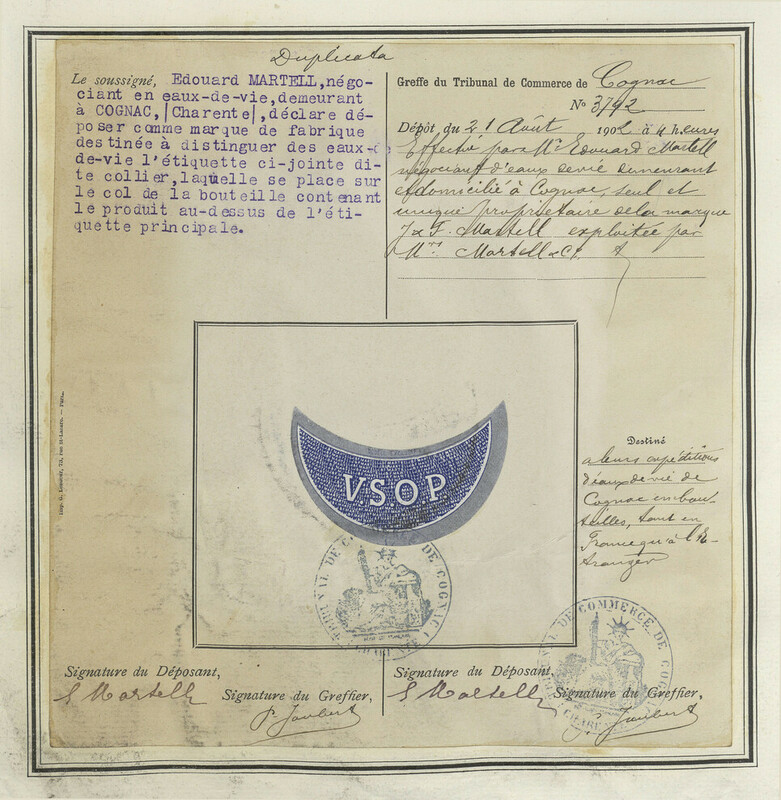 Duplicata
Le soussigné, Edouard MARTELL,négo-
ciant en eaux-de-vie,demeurant
à COGNAC,|Charente|,déclare dé-
poser comme marque de fabrique
destinée à distinguer des eaux-
de-vie l'étiquette ci-jointe di-
te collier,laquelle se place sur
le col de la bouteille contenant
le produit au-dessus de l'éti-
quette principale.
Greffe du Tribunal de Commerce de Cognac
No 3792
Dépôt du 21 Août 1902 à 4 heures
Effectué par Mr Edouard Martell
négociant d'eaux de vie demeurant
et domicilié à Cognac, seul et
unique propriétaire de la marque
J & F. Martell exploitée par
Mrs Martell & Cie
VSOP
TRIBUNAL DE COMMERCE DE COGNAC
CHARENTE
Destiné
à leurs expéditions
d'eaux-de-vie de
Cognac en bou-
teilles, tant en
France qu'à l'é-
tranger
DE COMMERCE DE COGNAC
Signature du Déposant,
E Martell
Signature du Greffier,
P. Joubert
Signature du Déposant,
E Martell
Signature du Greffier,
P. Joubert